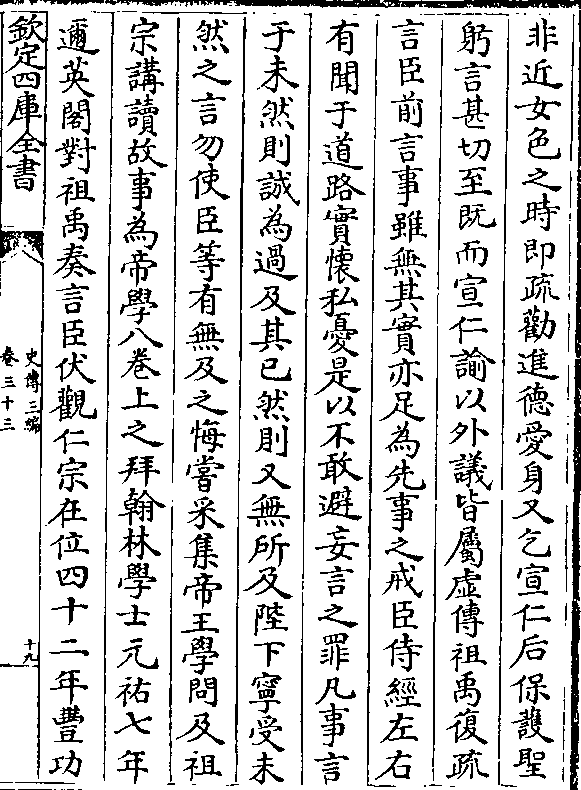 非近女色之時即疏勸進德愛身又乞宣仁后保護聖
躬言甚切至既而宣仁諭以外議皆屬虚傳祖禹復疏
言臣前言事雖無其實亦足為先事之戒臣侍經左右
有聞于道路實懐私憂是以不敢避妄言之罪凡事言
于未然則誠為過及其已然則又無所及陛下寧受未
然之言勿使臣等有無及之悔嘗采集帝王學問及祖
宗講讀故事為帝學八卷上之拜翰林學士元祐七年
邇英閣對祖禹奏言臣伏觀仁宗在位四十二年豐功
欽定四庫全書
史傳三編
卷三十三
十九